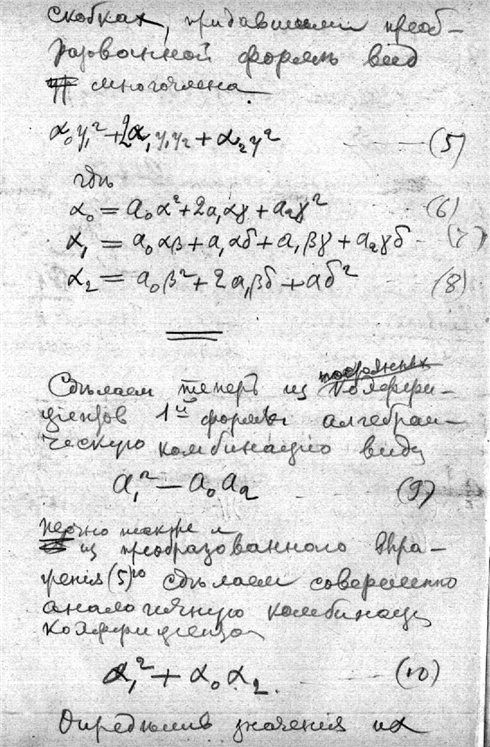 скобках, придавшими преоб-
разованной формѣ вид
многочлена
α₀y₁²+2α₁y₁y₂+α₂y² — (5)
гдѣ
α₀ = a₀α²+2a₁αγ+a₂γ² (6)
α₁ = a₀αβ+a₁αδ+a₁βγ+a₂γδ - (7)
α₂ = a₀β²+2a₁βδ+aδ² - (8)
Сдѣлаем теперь из постоянных коэффи-
циентов 1ой формы алгебраи-
ческую комбинацію виду
a₁²—a₀a₂ — (9)
из преобразованного выра-
женія (5)го сдѣлаем совершенно
аналогичную комбинац
коэффициентов
α₁²+α₀α₂. — (10)
Опредѣлив значения их